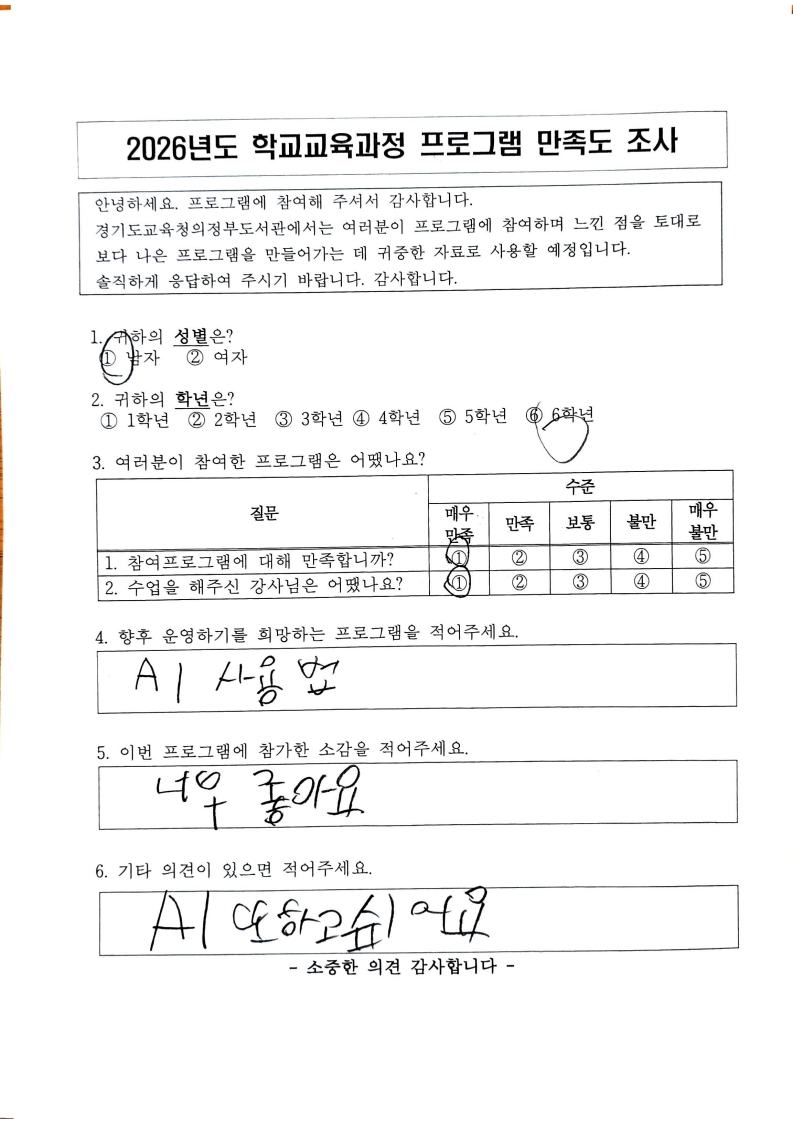 2026년도 학교교육과정 프로그램 만족도 조사
안녕하세요. 프로그램에 참여해 주셔서 감사합니다.
경기도교육청의정부도서관에서는 여러분이 프로그램에 참여하며 느낀 점을 토대로
보다 나은 프로그램을 만들어가는 데 귀중한 자료로 사용할 예정입니다.
솔직하게 응답하여 주시기 바랍니다. 감사합니다.
1. 귀하의 성별은?
① 남자 ② 여자
2. 귀하의 학년은?
① 1학년 ② 2학년 ③ 3학년 ④ 4학년 ⑤ 5학년 ⑥ 6학년
3. 여러분이 참여한 프로그램은 어땠나요?
질문 수준
매우 만족 만족 보통 불만 매우 불만
1. 참여프로그램에 대해 만족합니까? ① ② ③ ④ ⑤
2. 수업을 해주신 강사님은 어땠나요? ① ② ③ ④ ⑤
4. 향후 운영하기를 희망하는 프로그램을 적어주세요.
AI 사용 법
5. 이번 프로그램에 참가한 소감을 적어주세요.
너무 좋아요
6. 기타 의견이 있으면 적어주세요.
AI 또하고슾이 어요
- 소중한 의견 감사합니다 -